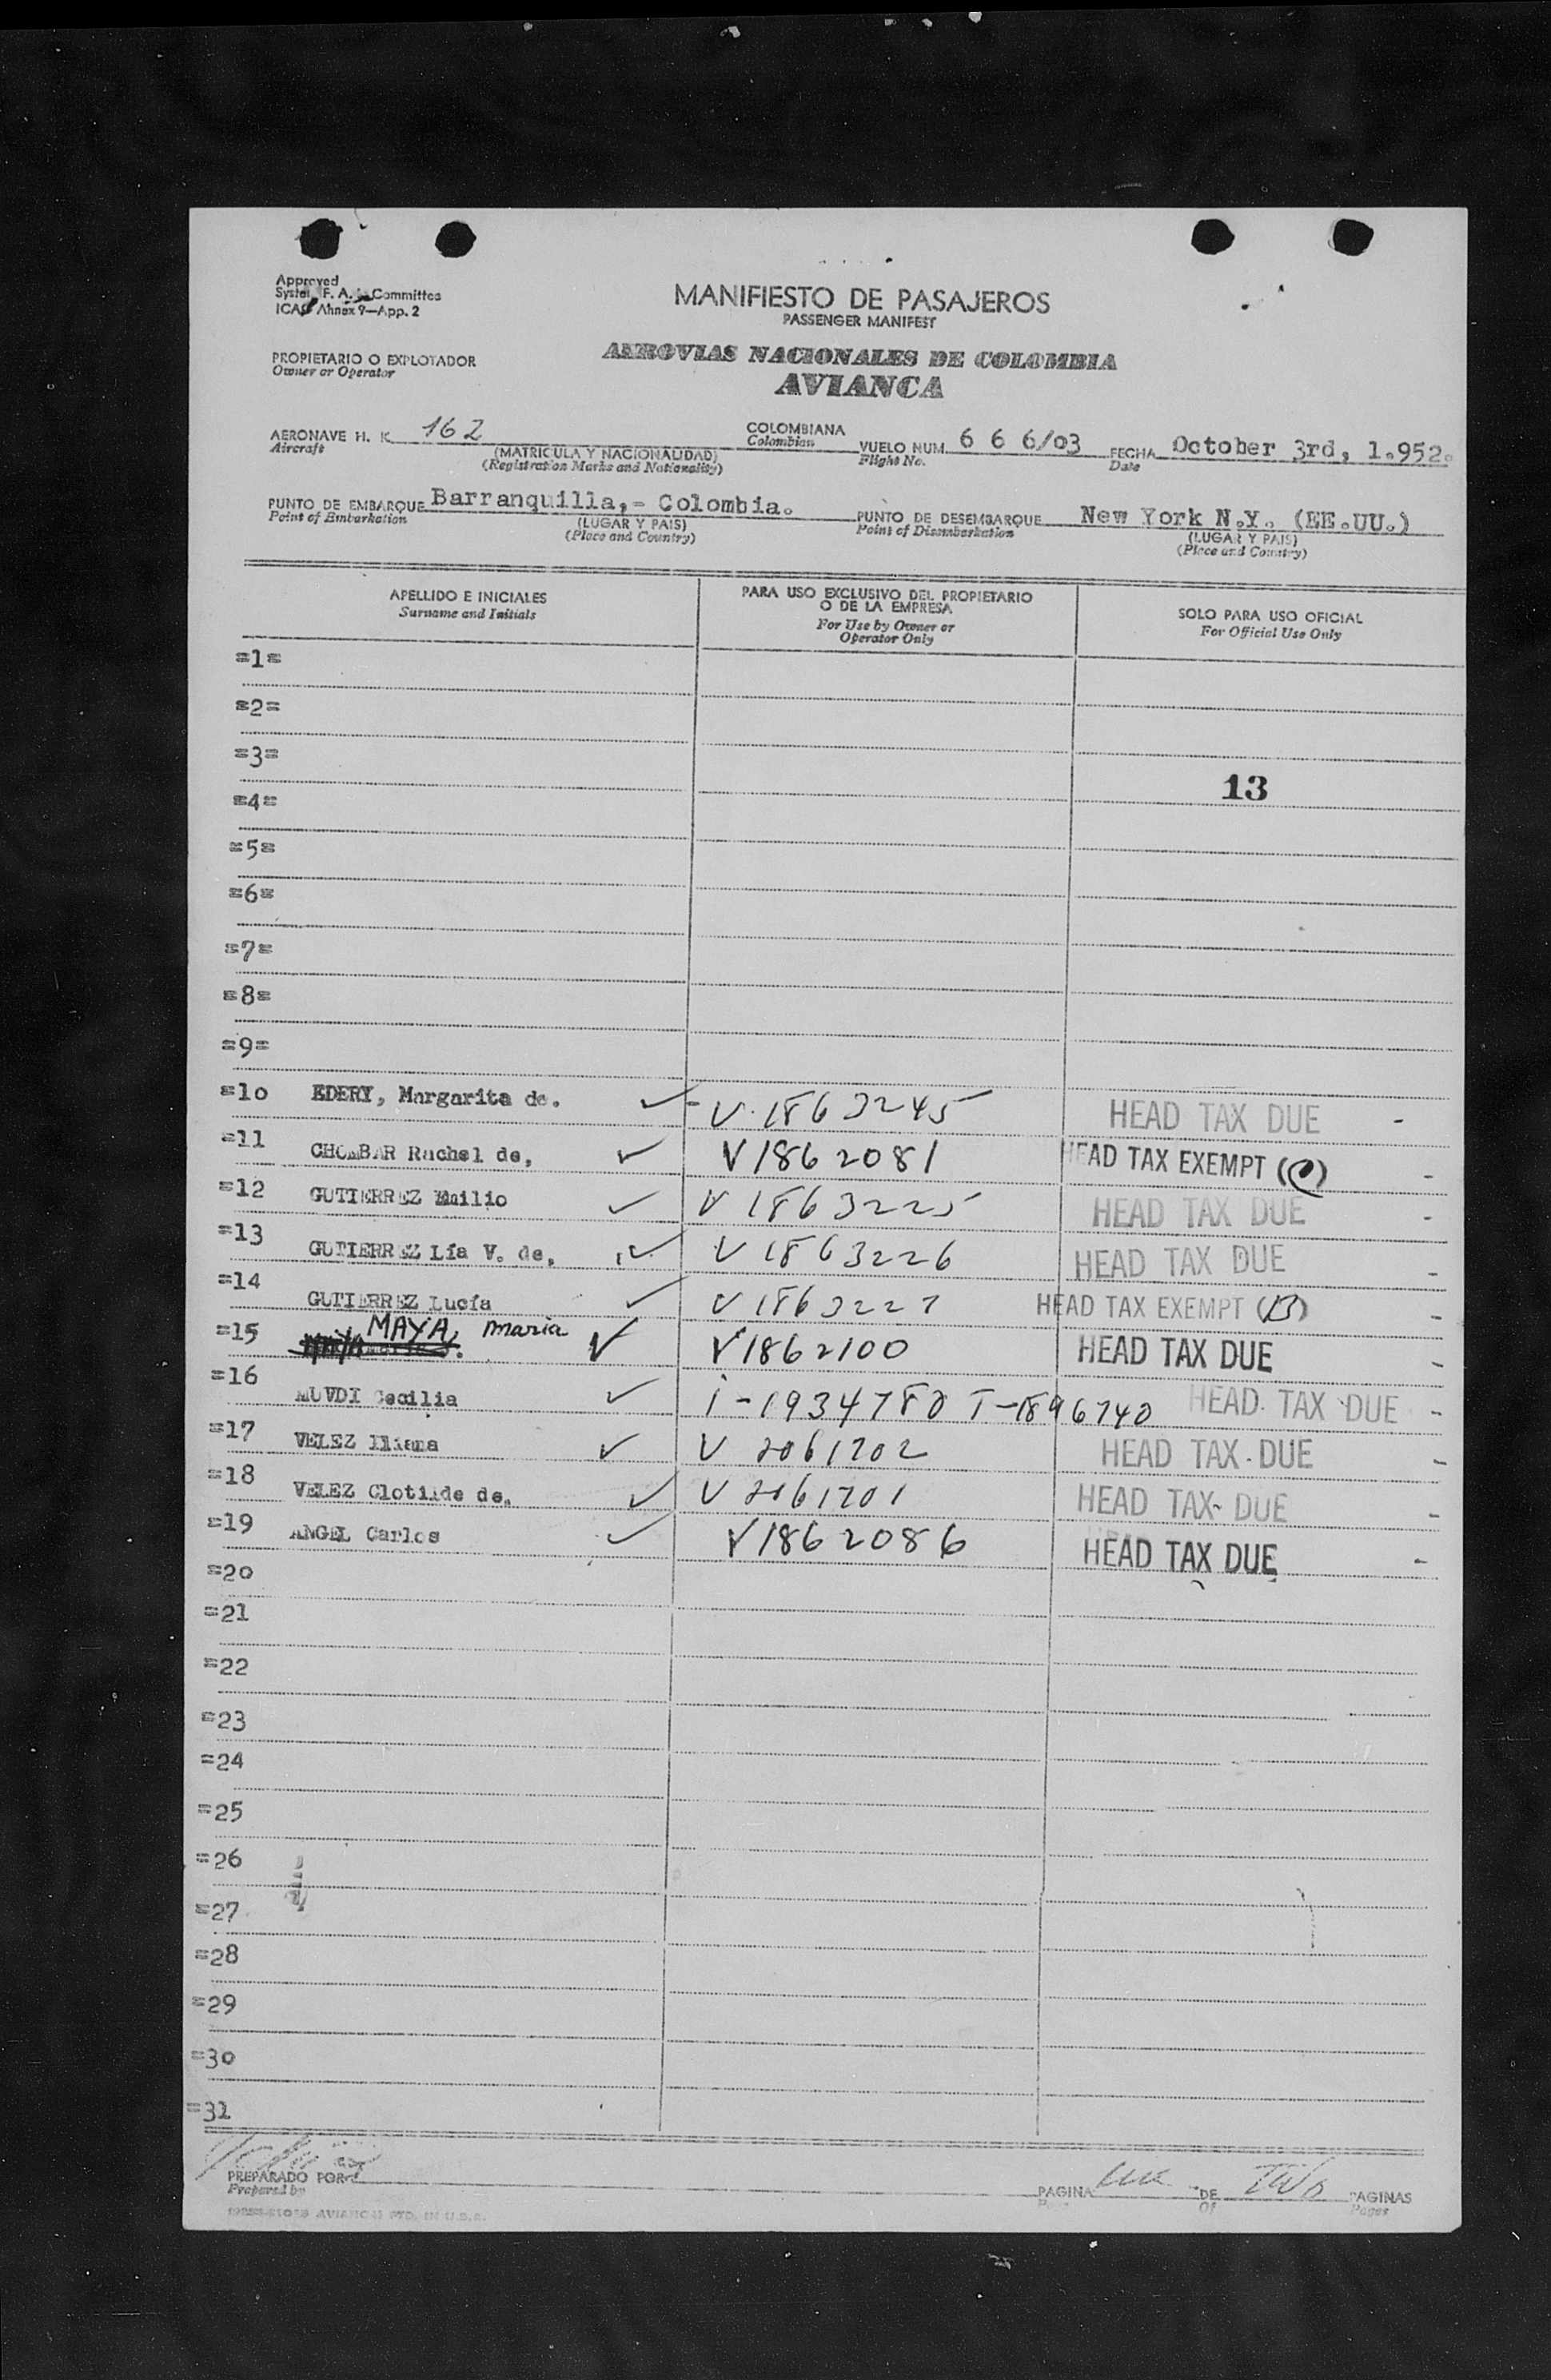 Approved
F. A. Committee
ICAO Annex 9—App. 2
MANIFIESTO DE PASAJEROS
PASSENGER MANIFEST
PROPIETARIO O EXPLOTADOR
Owner or Operator
AEROVIAS NACIONALES DE COLOMBIA
AVIANCA
AERONAVE H. K. 162 COLOMBIANA VUELO NUM. 6 6 6/03 FECHA October 3rd, 1.952.
Aircraft (MATRICULA Y NACIONALIDAD) Colombian Flight No. Date
(Registration Marks and Nationality)
PUNTO DE EMBARQUE Barranquilla,- Colombia. PUNTO DE DESEMBARQUE New York N.Y. (EE.UU.)
Point of Embarkation (LUGAR Y PAIS) Point of Disembarkation (LUGAR Y PAIS)
(Place and Country) (Place and Country)
APELLIDO E INICIALES
Surname and Initials
PARA USO EXCLUSIVO DEL PROPIETARIO
O DE LA EMPRESA
For Use by Owner or
Operator Only
SOLO PARA USO OFICIAL
For Official Use Only
=1=
=2=
=3=
13
=4=
=5=
=6=
=7=
=8=
=9=
=10 EDERY, Margarita de. ✓ V. 1863245 HEAD TAX DUE -
=11 CHOMBAR Rachel de, ✓ V1862081 HEAD TAX EXEMPT (e) -
=12 GUTIERREZ Emilio ✓ V 1863225 HEAD TAX DUE -
=13 GUTIERREZ Lía V. de, ✓ V 1863226 HEAD TAX DUE -
=14 GUTIERREZ Lucía ✓ V 1863227 HEAD TAX EXEMPT (13)
=15 MAYA, Maria ✓ V1862100 HEAD TAX DUE -
=16 MUVDI Cecilia ✓ i-1934780 T-1896740 HEAD TAX DUE -
=17 VELEZ Iliana ✓ V 2061202 HEAD TAX DUE -
=18 VELEZ Clotilde de. ✓ V 2061201 HEAD TAX DUE -
=19 ANGEL Carlos ✓ V1862086 HEAD TAX DUE -
=20
=21
=22
=23
=24
=25
=26
=27
=28
=29
=30
=31
PREPARADO POR PAGINA DE Two PAGINAS
Prepared by Page Of Pages
AVIANCA PTD. IN U.S.A.